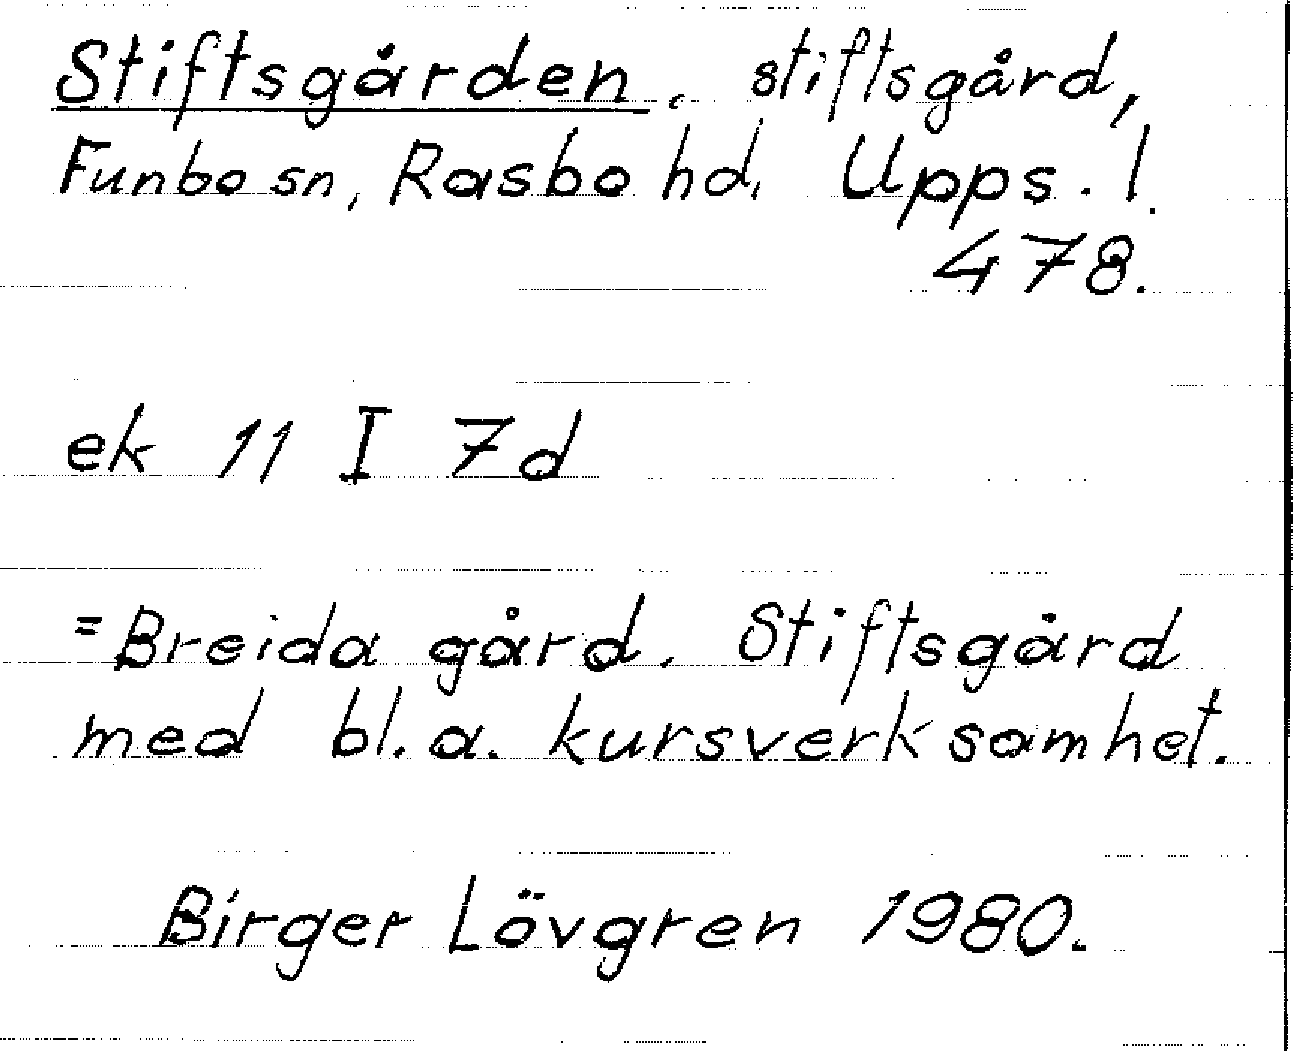 Stiftsgården. stiftsgård,
Funbo sn, Rasbo hd, Upps. l.
478.
ek 11 I 7d
= Breida gård. Stiftsgård
med bl. a. kursverksamhet.
Birger Lövgren 1980.